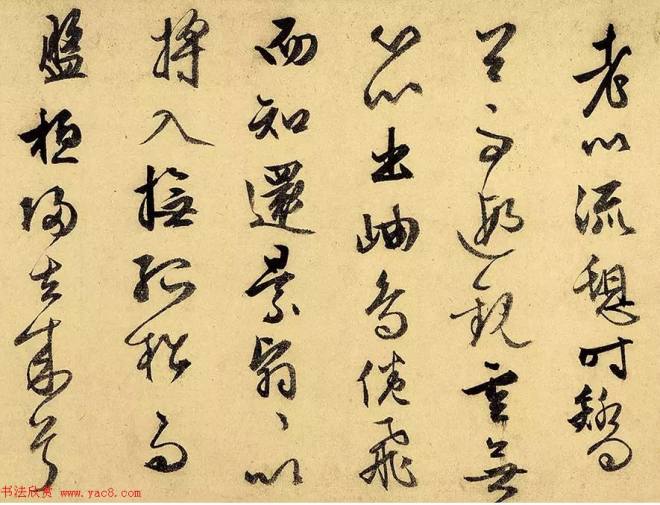 老以流憩时矯
首而遐觀雲無
心以出岫鳥倦飛
而知還景翳〻以
將入撫孤松而
盤桓歸去來兮
书法欣赏 www.yac8.com